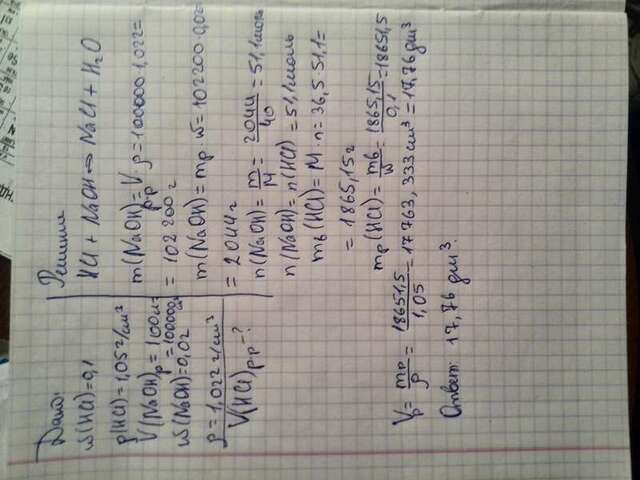 Дано:
w(HCl)=0,1
ρ(HCl)=1,05г/см³
V(NaOH)р=100л=
=100000см³
w(NaOH)=0,02
ρ=1,022г/см³
V(HCl)р-р-?
Решение
HCl + NaOH = NaCl + H₂O
m(NaOH)р-р=V·ρ=100000·1,022=
=102200г
m(NaOH)=mр·w=102200·0,02=
=2044г
n(NaOH)=m/M=2044/40=51,1моль
n(NaOH)=n(HCl)=51,1моль
mв(HCl)=M·n=36,5·51,1=
=1865,15г
mр(HCl)=mв/w=1865,15/0,1=18651,5
Vр=mр/ρ=18651,5/1,05=17763,333см³=17,76дм³
Ответ: 17,76 дм³.